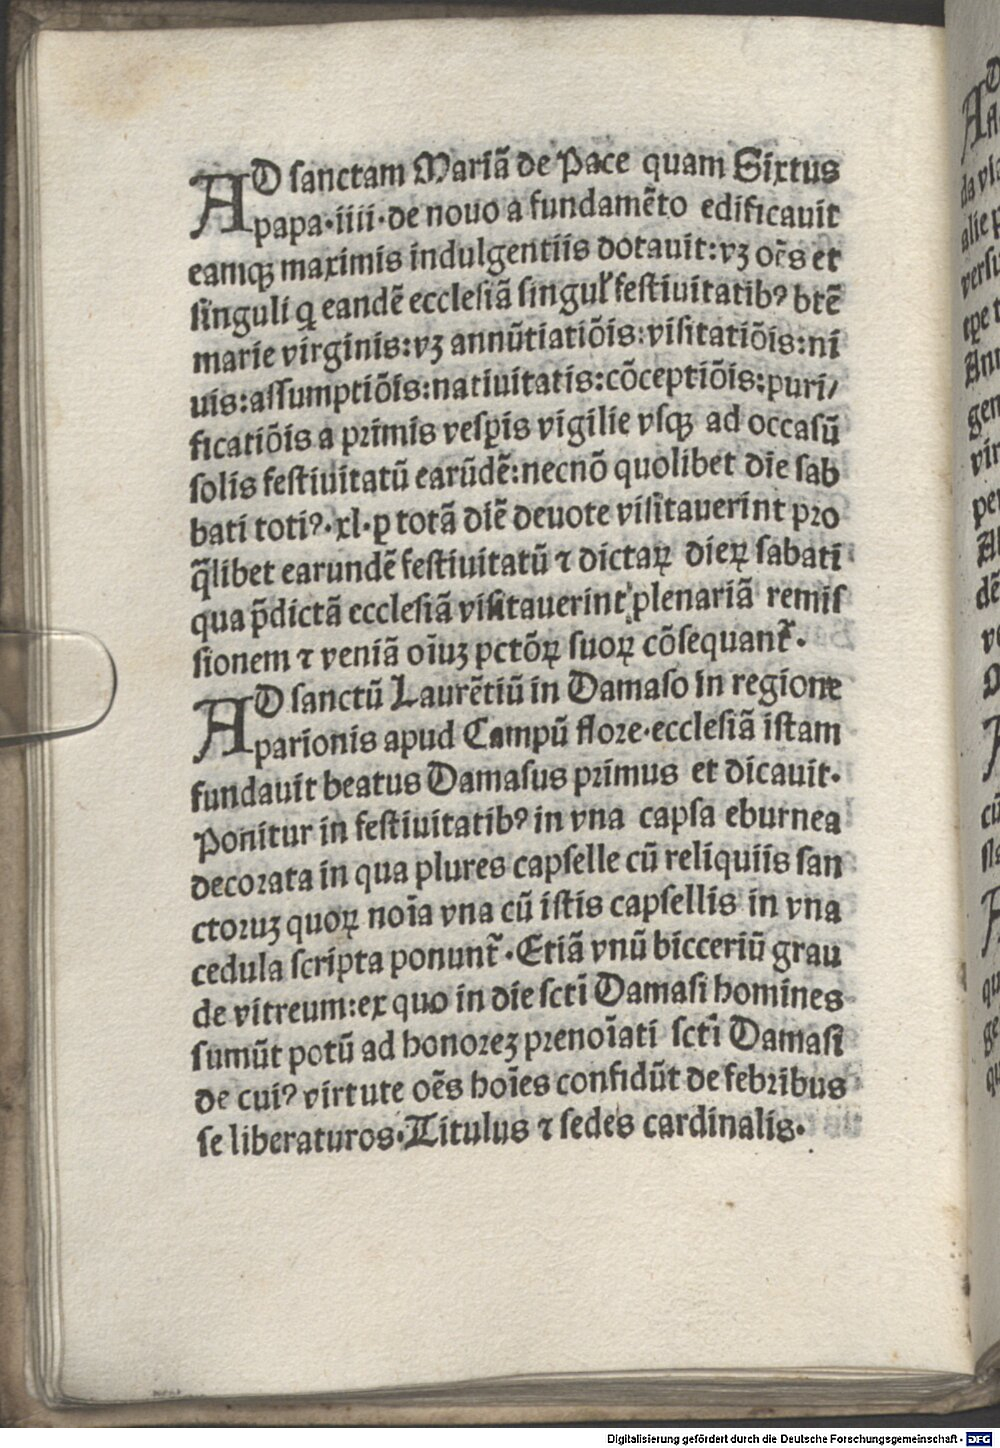 AD sanctam Mariā de Pace quam Sixtus
papa·iiii·de nouo a fundamēto edificauit
eamqꝫ maximis indulgentiis dotauit:vꝫ oēs et
singuli q̱ eandē ecclesiā singuł festiuitatibꝰ btē
marie virginis:vꝫ annūtiatiōis:visitatiōis:ni
uis:assumptiōis:natiuitatis:cōceptiōis:puri/
ficatiōis a primis vesꝑis vigilie vsqꝫ ad occasū
solis festiuitatū earūdē:necnō quolibet die sab
bati totiꝰ·xl·ꝑ totā diē deuote visitauerint pro
q̄libet earundē festiuitatū ⁊ dictaꝝ dieꝝ sabati
qua p̄dictā ecclesiā visitauerint plenariā remis
sionem ⁊ veniā oīuꝫ pctōꝝ suoꝝ cōsequant᷑·
AD sanctū Laurētiū in Damaso in regione
parionis apud Campū flore·ecclesiā istam
fundauit beatus Damasus primus et dicauit·
Ponitur in festiuitatibꝰ in vna capsa eburnea
decorata in qua plures capselle cū reliquiis san
ctoruꝫ quoꝝ noīa vna cū istis capsellis in vna
cedula scripta ponunt᷑·Etiā vnū bicceriū gran
de vitreum:ex quo in die scti Damasi homines
sumūt potū ad honoreꝫ prenoīati scti Damasi
de cuiꝰ virtute oēs hoīes confidūt de febribus
se liberaturos·Titulus ⁊ sedes cardinalis·
Digitalisierung gefördert durch die Deutsche Forschungsgemeinschaft - DFG